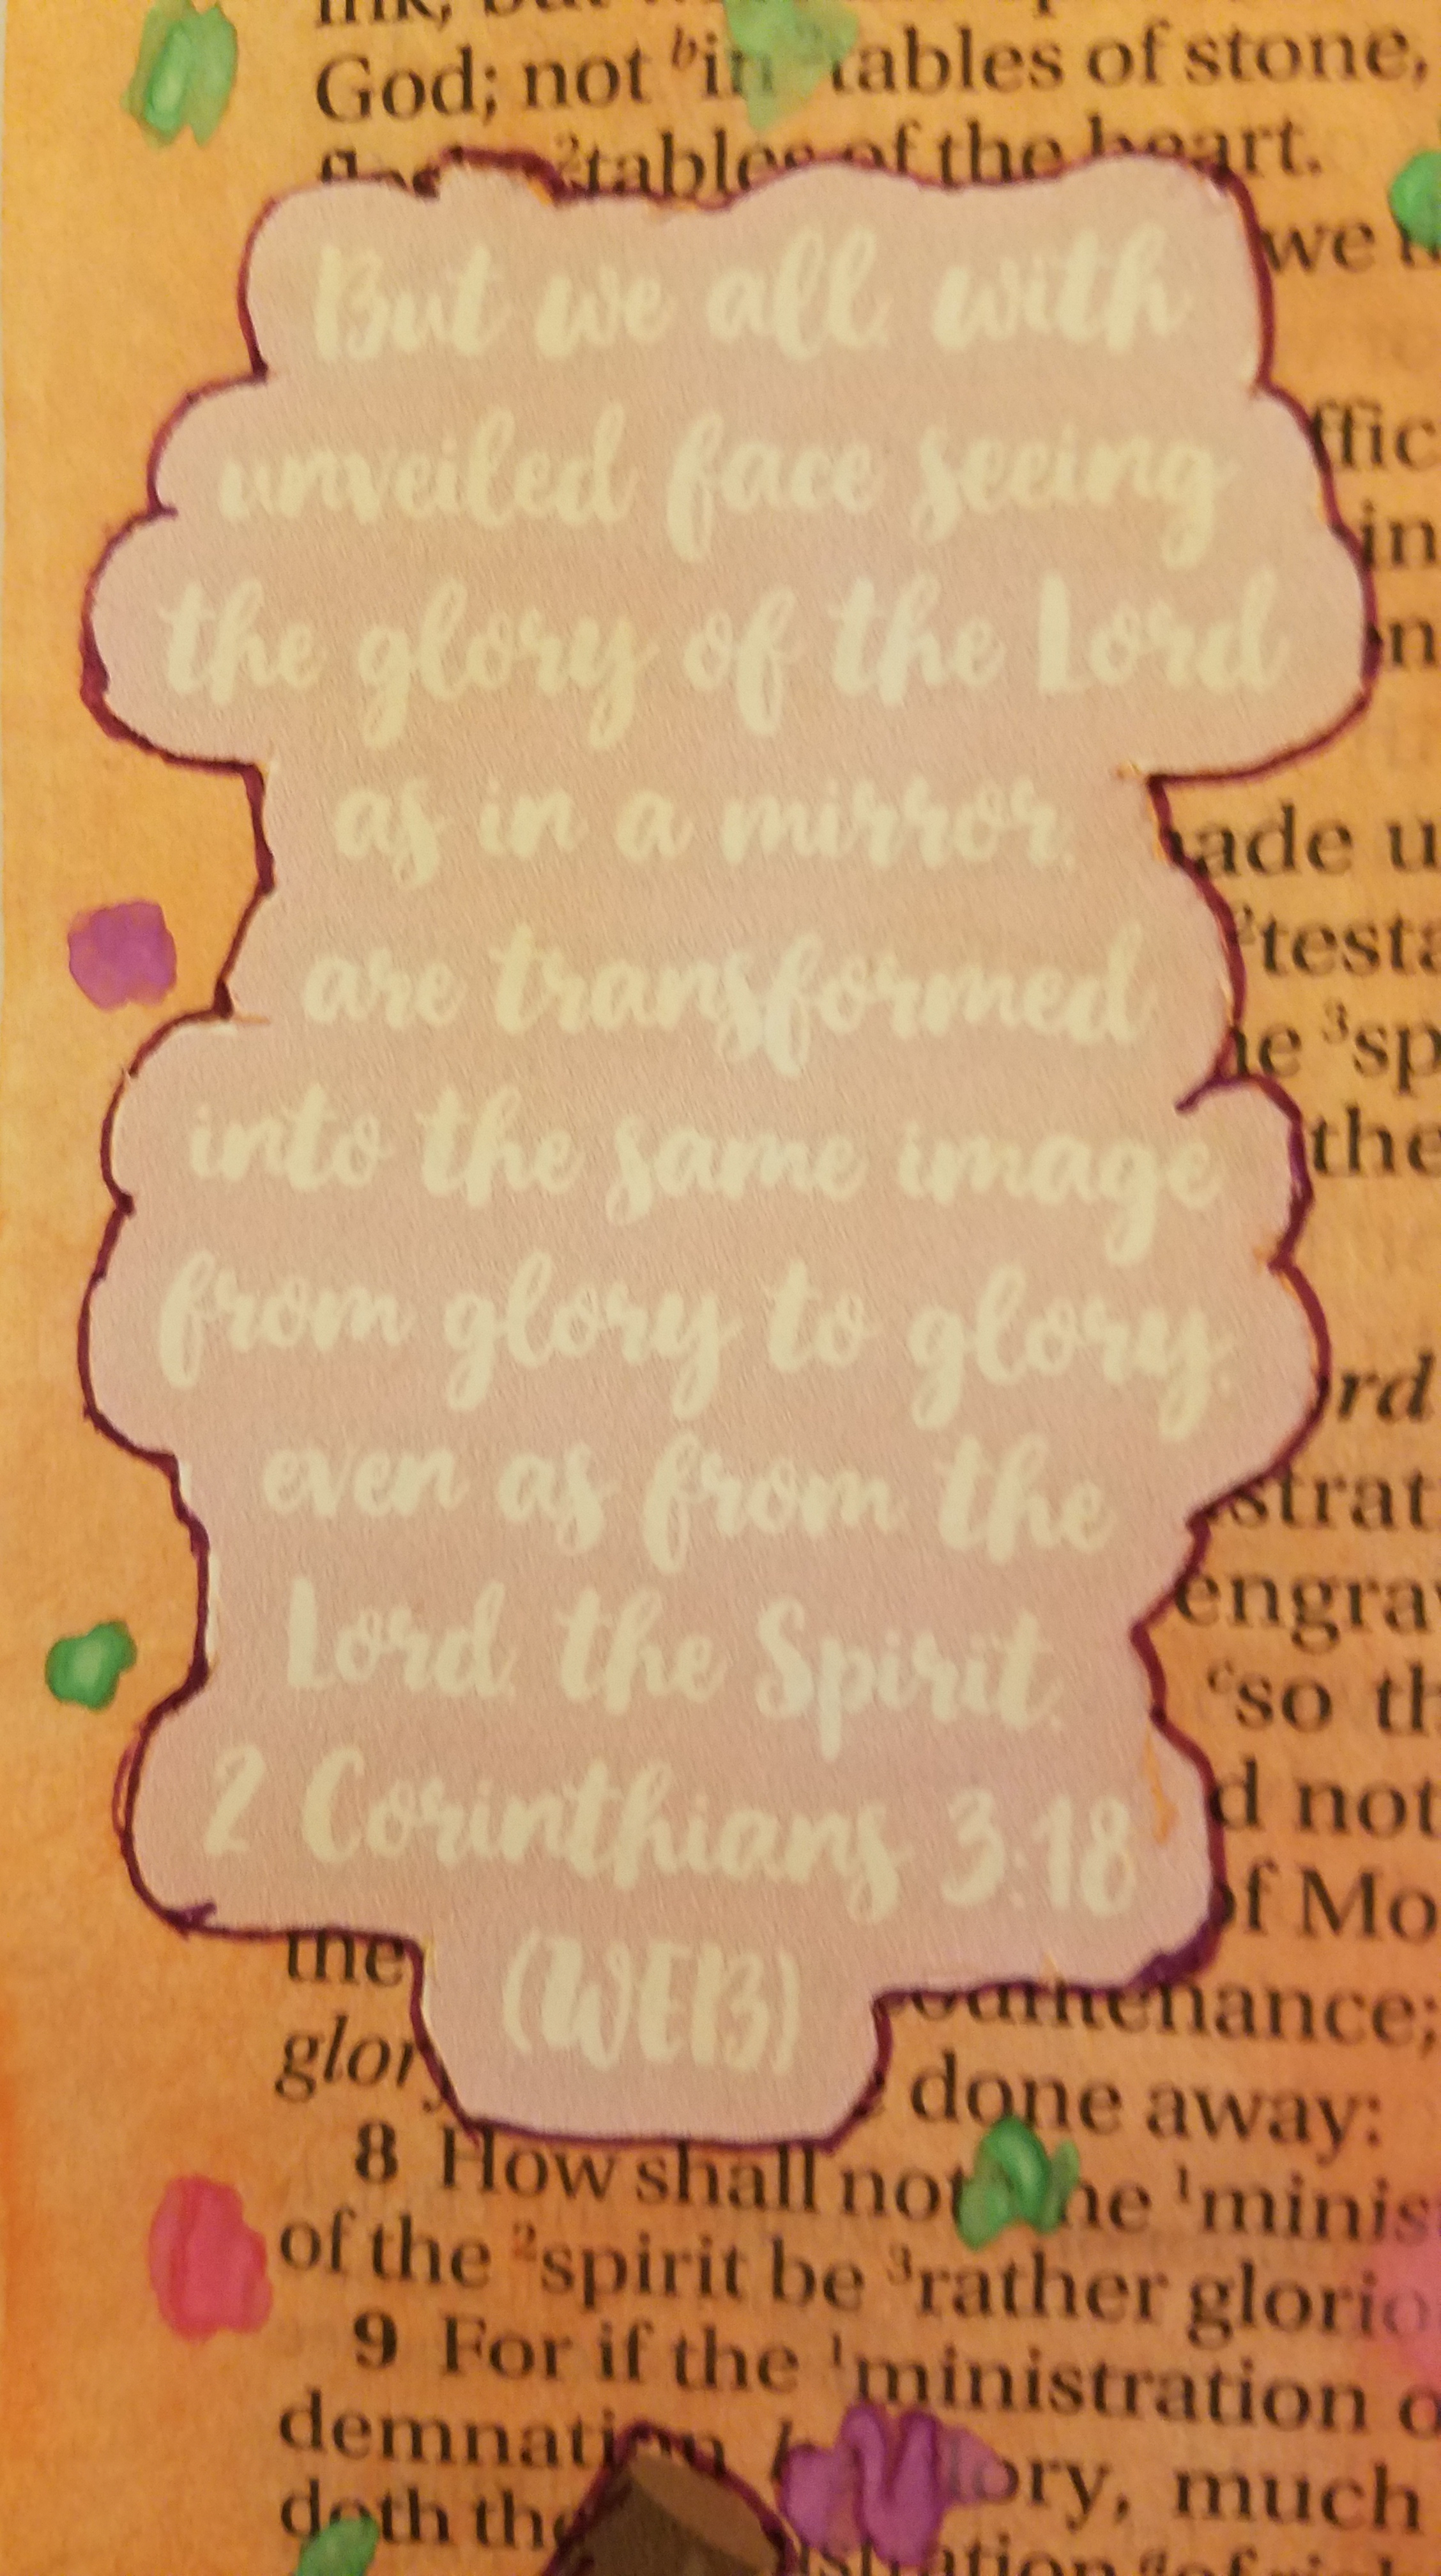 God; not b in tables of stone,
2 tables of the heart.
we
But we all, with
unveiled face seeing
the glory of the Lord
as in a mirror,
are transformed
into the same image
from glory to glory,
even as from the
Lord, the Spirit.
2 Corinthians 3:18
(WEB)
in
ade u
2 testa
3 sp
the
rd
strat
engra
c so th
d not
of Mo
the
countenance;
glory
done away:
8 How shall not the 1 minis
of the 2 spirit be 3 rather glorio
9 For if the 1 ministration o
demnation
ory, much
doth the